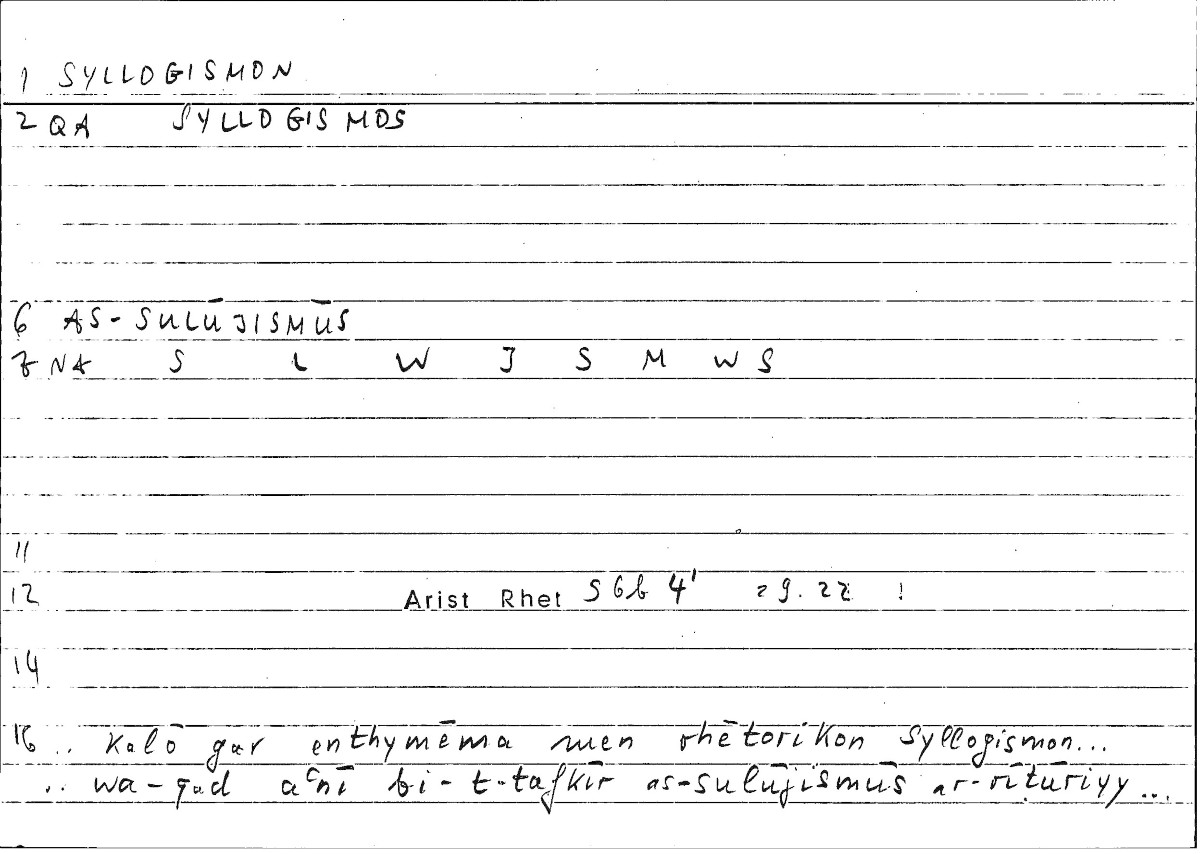 1 SYLLOGISMON
2 QA SYLLOGISMOS
6 AS-SULŪJISMŪS
7 NA S L W J S M W S
11
12 Arist Rhet 56b 4' 29.22 !
14
16 .. Kalō gar enthymēma men rhētorikon syllogismon...
.. wa-qad aʿnī bi-t-tafkīr as-sulūjismūs ar-rīṭūriyy...